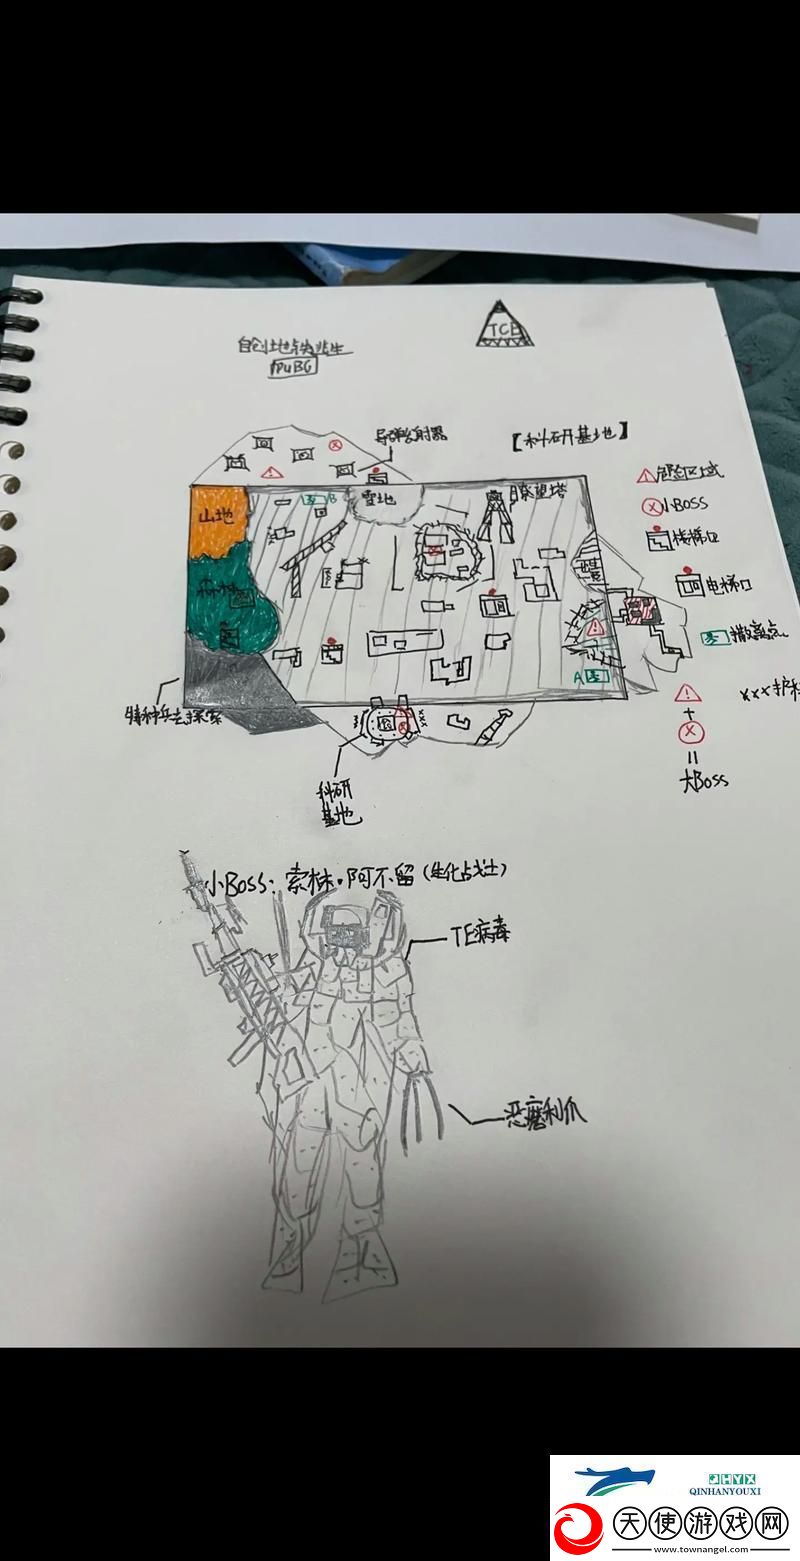 自创地铁逃生
PUBG
TCE
导弹发射器
【科研基地】
B
雪地
瞭望塔
山地
森林
危险区域
小BOSS
楼梯口
电梯口
撤离点
A
特种兵去探索
科研
基地
+
=
大Boss
小BOSS：索林·阿不留（生化战士）
TE病毒
恶魔利爪
QHYX
QINHANYOUXI
天使游戏网
www.townangel.com